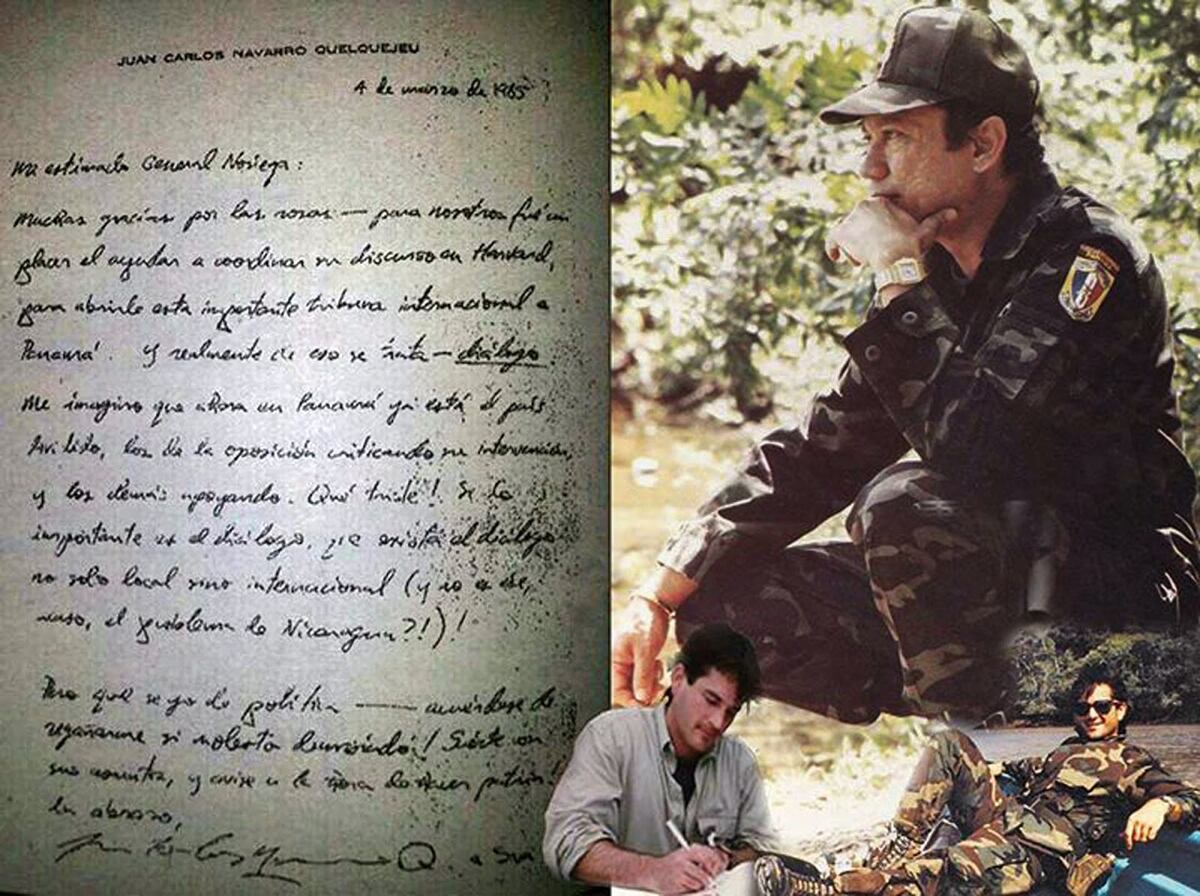 JUAN CARLOS NAVARRO QUELQUEJEU
4 de marzo de 1985
Mi estimado General Noriega:
Muchas gracias por las rosas — para nosotros fué un
placer el ayudar a coordinar su discurso en Harvard,
para abrirle esta importante tribuna internacional a
Panamá. Y realmente de eso se trata — diálogo.
Me imagino que ahora en Panamá ya está el país
dividido, los de la oposición criticando su intervención,
y los demás apoyando. Qué triste! Si lo
importante es el diálogo, que exista el diálogo
no solo local sino internacional (y no es ese,
acaso, el problema de Nicaragua?!)!
Pero qué se yo de política — acuérdese de
regañarme si molesto demasiado! Suerte con
sus, y avise a la hora de hacer patria!
Un abrazo,
Juan Carlos Navarro Q.